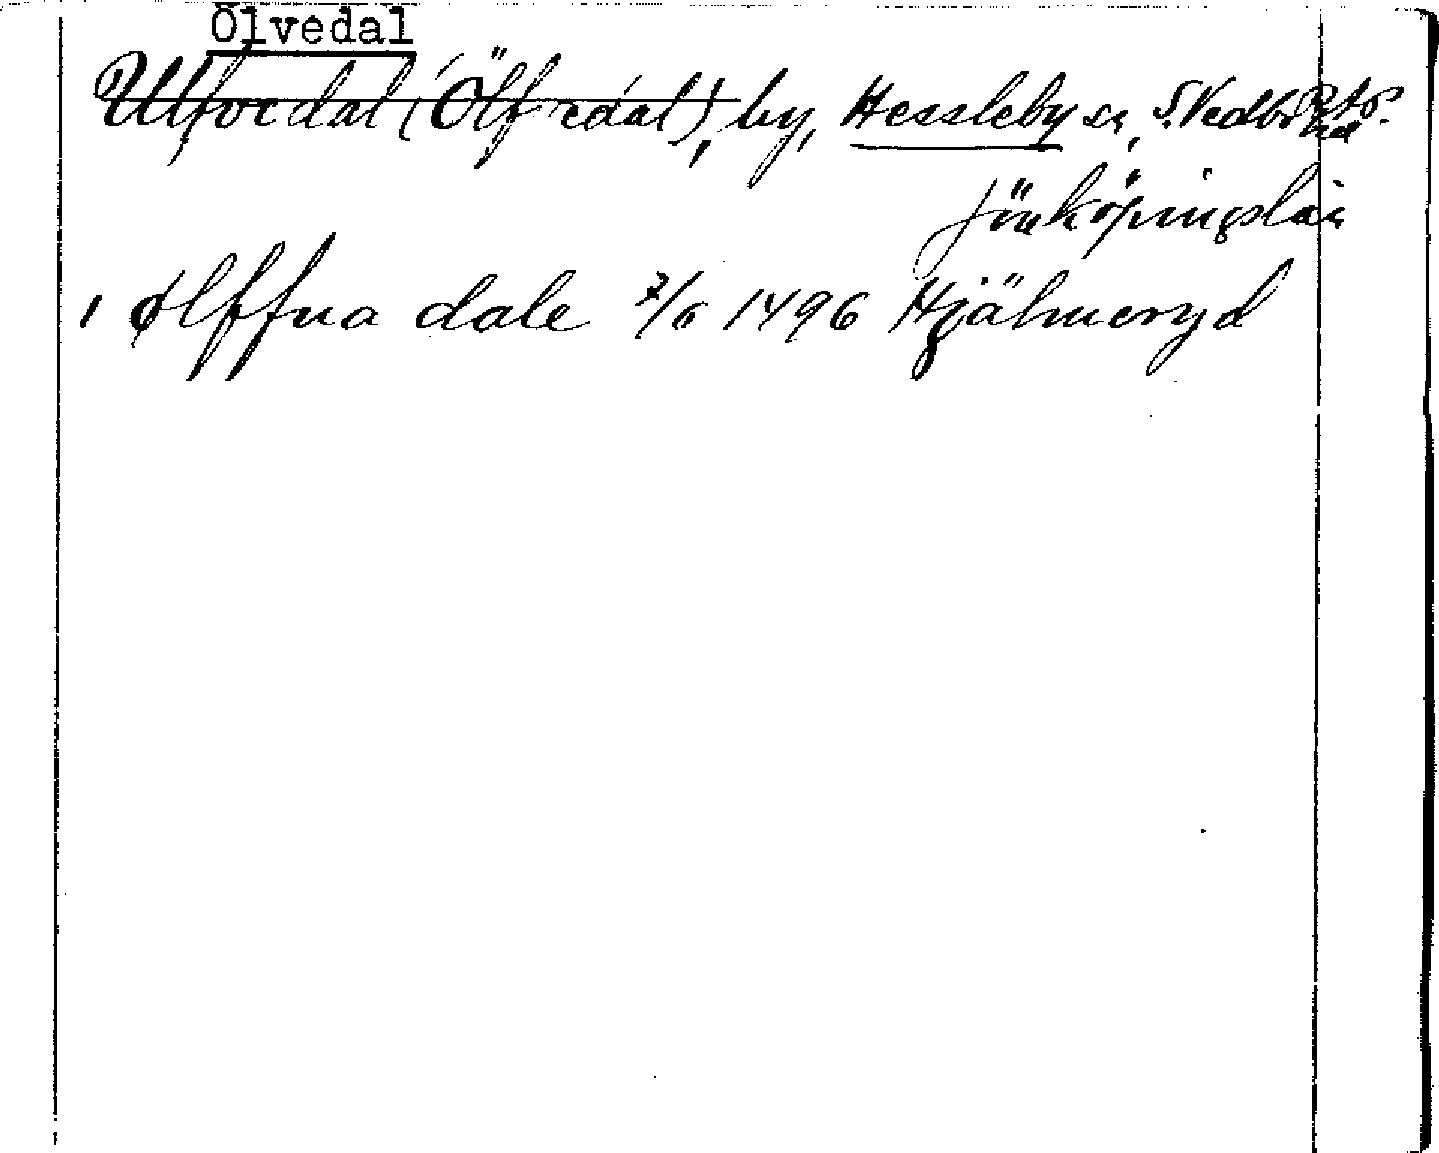 Ölvedal
Ulfvedal (Ölfvedal), by, Hessleby sn, S. Vedbo
Jönköpings län
i Ølffua dale 7/6 1496 Hjälmeryd